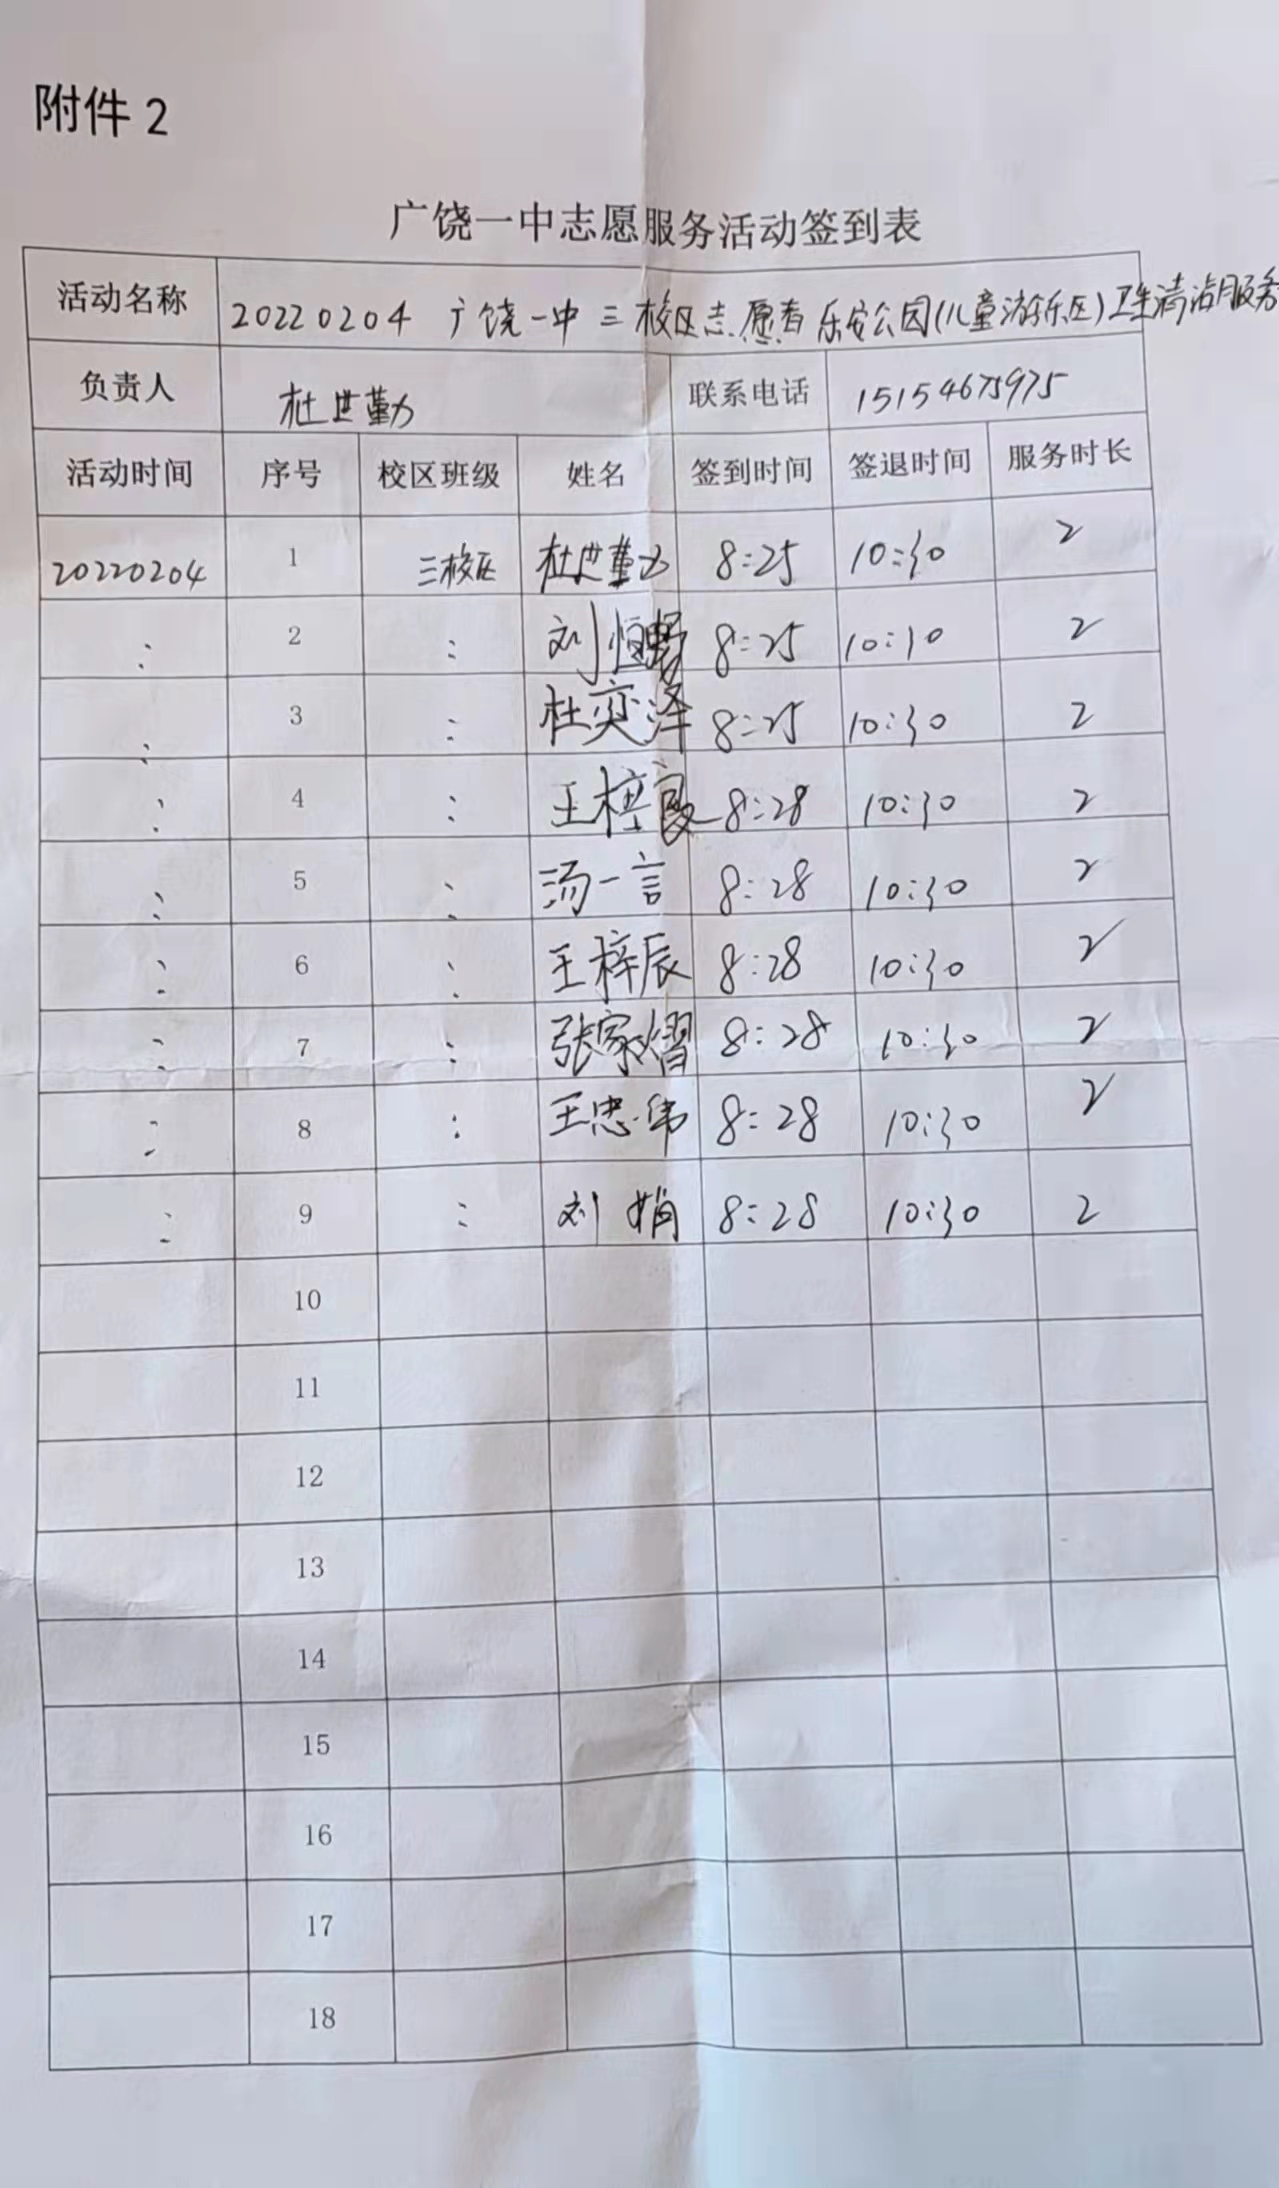 附件 2
广饶一中志愿服务活动签到表
活动名称 20220204 广饶一中三校区志愿者乐安公园(儿童游乐区)卫生清洁服务
负责人 杜世勤 联系电话 15154675975
活动时间 序号 校区班级 姓名 签到时间 签退时间 服务时长
20220204 1 三校区 杜世勤 8:25 10:30 2
: 2 : 刘恒 8:25 10:30 2
: 3 : 杜奕泽 8:25 10:30 2
: 4 : 王 8:28 10:30 2
: 5 : 汤一言 8:28 10:30 2
: 6 : 王梓辰 8:28 10:30 2
: 7 : 张家熠 8:28 10:30 2
: 8 : 王忠伟 8:28 10:30 2
: 9 : 刘娟 8:28 10:30 2
10
11
12
13
14
15
16
17
18